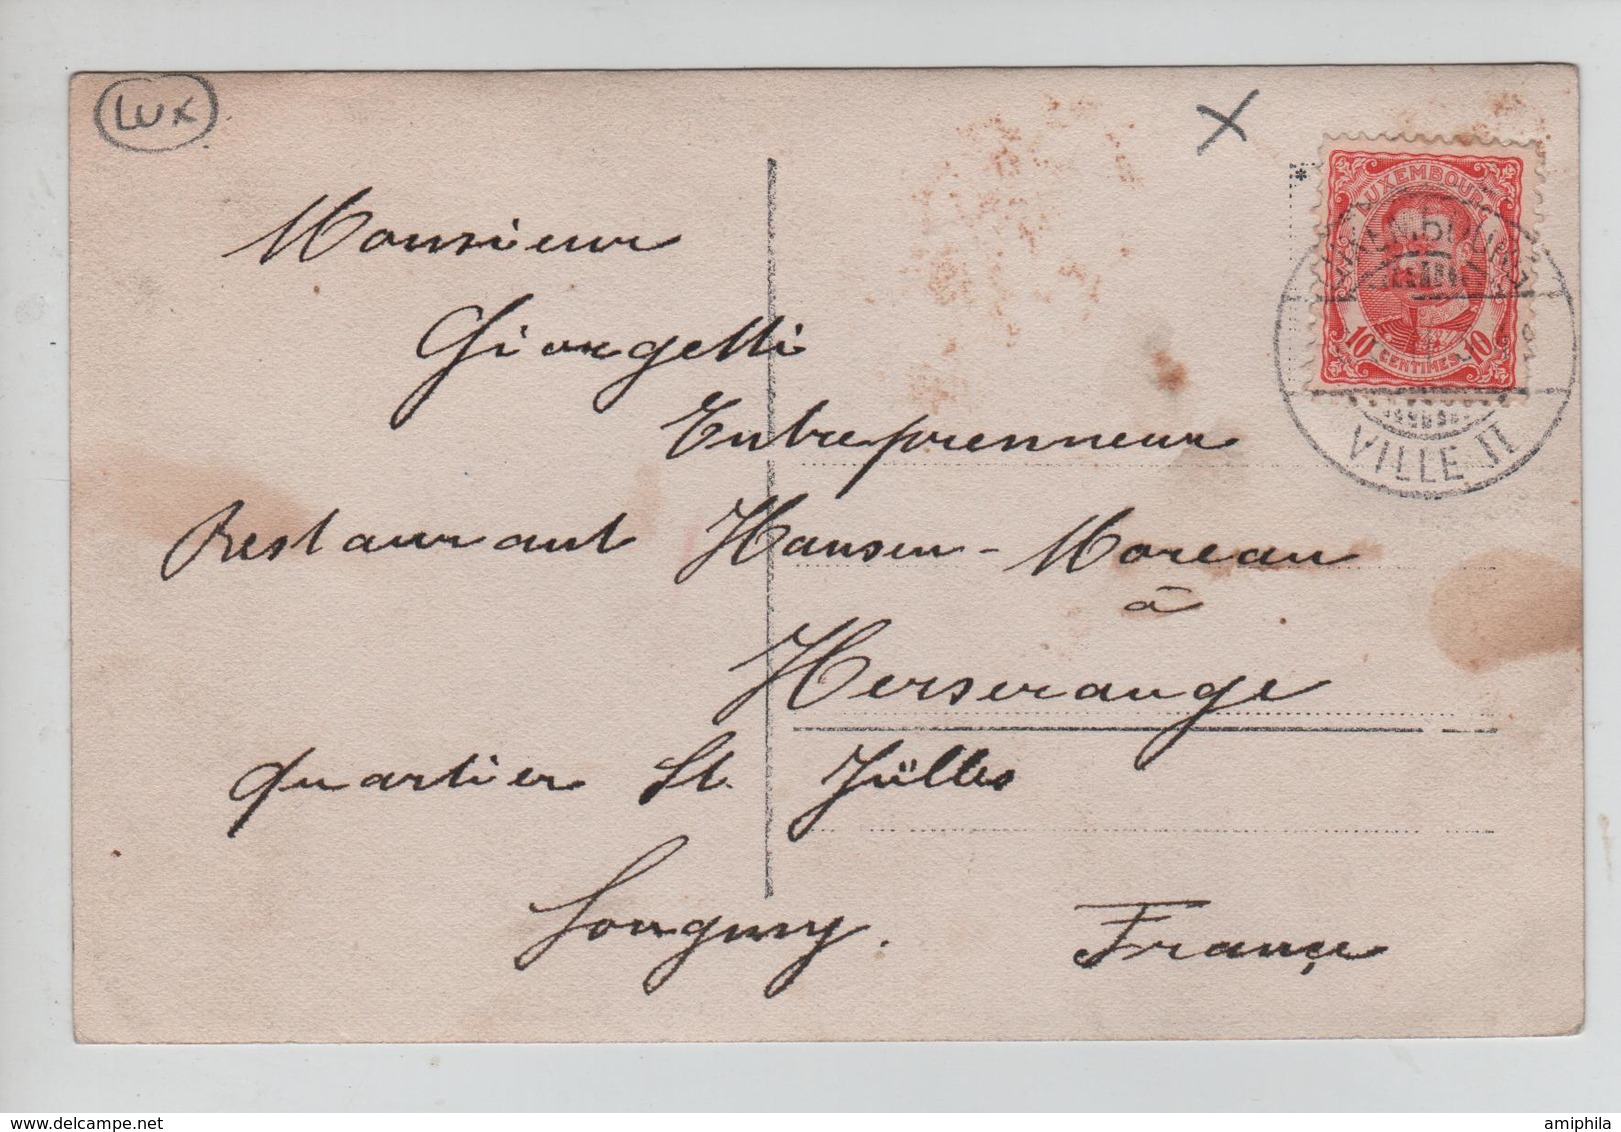 Lux
X
LUXEMBOURG
10 CENTIMES 10
LUXEMBOURG
VILLE II
Monsieur
Giorgetti
Entreprenneur
Restaurant Hansen-Moreau
à
Herserange
quartier St. Jülles
Longwy. France
amiphila